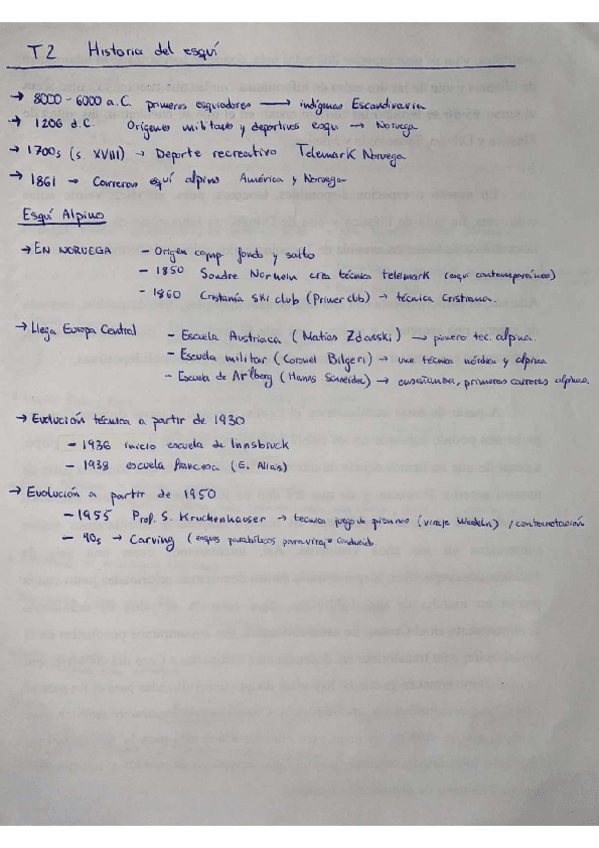 T2 Historia del esquí
→ 8000 - 6000 a.C. primeros esquiadores → indígenas Escandinavia
→ 1206 d.C. Orígenes militares y deportivos esquí → Noruega
→ 1700s (s. XVIII) → Deporte recreativo Telemark Noruega
→ 1861 → Carreras esquí alpino América y Noruega
Esquí Alpino
→ EN NORUEGA - Origen comp. fondo y salto
- 1850 Sondre Norheim crea técnica telemark (esquí contemporáneo)
- 1860 Cristianía Ski club (Primer club) → técnica Cristiania.
→ Llega Europa Central - Escuela Austriaca (Matias Zdarski) → pionero tec. alpina.
- Escuela militar (Coronel Bilgeri) → une técnica nórdica y alpina
- Escuela de Arlberg (Hanns Schneider) → enseñanza, primeras carreras alpinas.
→ Evolución técnica a partir de 1930
- 1936 inicio escuela de Innsbruck
- 1938 escuela francesa (E. Allais)
→ Evolución a partir de 1950
- 1955 Prof. S. Kruckenhauser → técnica juego de piernas (viraje Wedeln) / contrarotación
- 90s → Carving (esquís parabólicos para viraje conducido